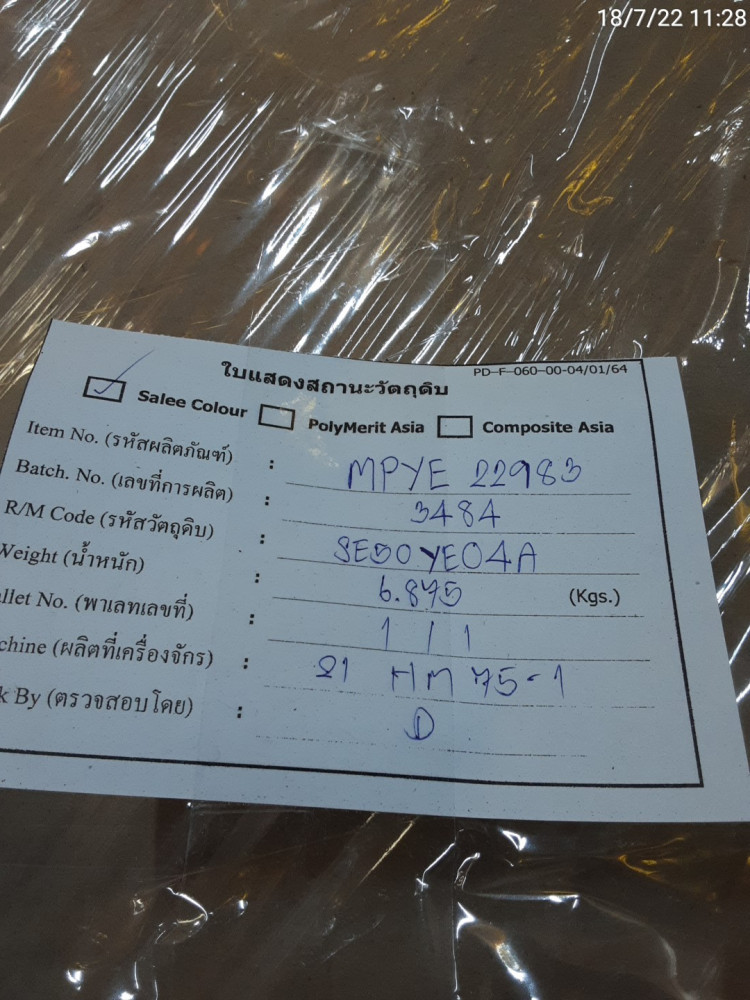 18/7/22 11:28
ใบแสดงสถานะวัตถุดิบ PD-F-060-00-04/01/64
Salee Colour PolyMerit Asia Composite Asia
Item No. (รหัสผลิตภัณฑ์) : MPYE 22983
Batch. No. (เลขที่การผลิต) : 3484
R/M Code (รหัสวัตถุดิบ) : SE50YE04A
Weight (น้ำหนัก) : 6.875 (Kgs.)
llet No. (พาเลทเลขที่) : 1 / 1
chine (ผลิตที่เครื่องจักร) : 21 HM 75-1
k By (ตรวจสอบโดย) : D